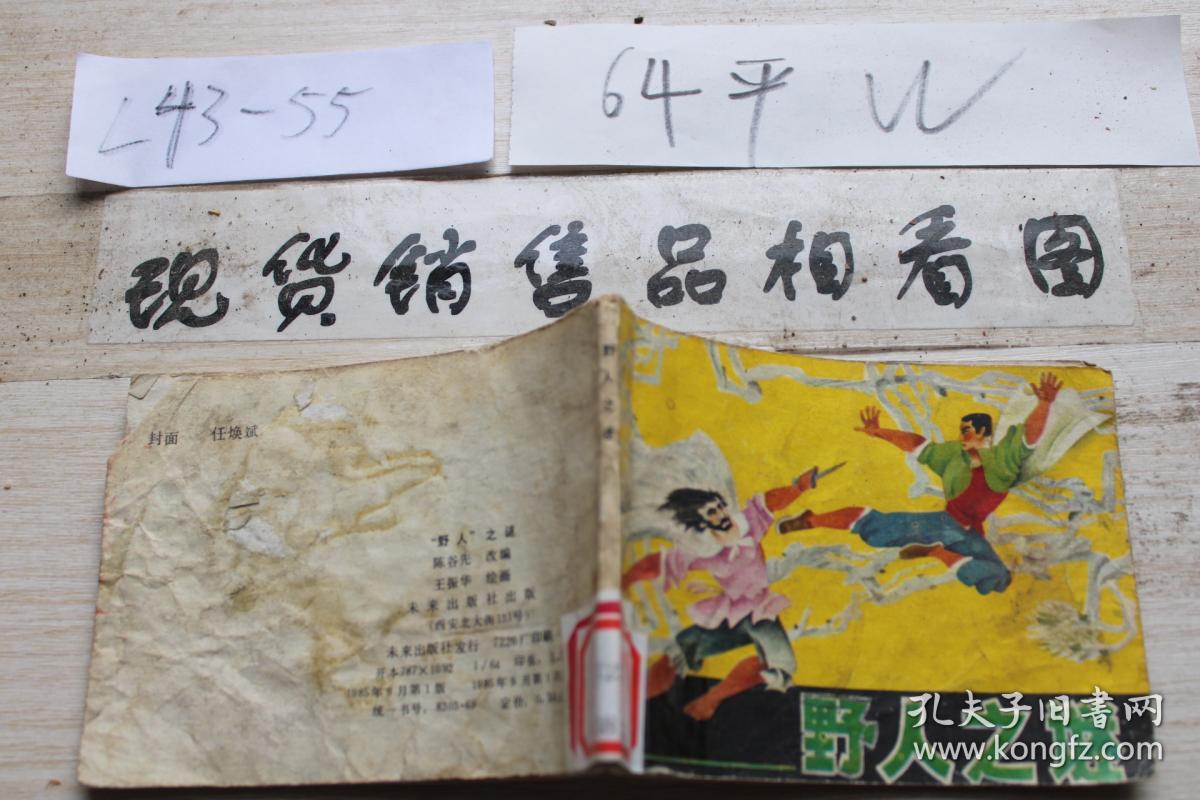 L43-55
64平 W
现货销售品相看图
野人之谜
封面 任焕斌
"野人"之谜
陈谷先 改编
王振华 绘画
未来出版社出版
(西安北大街131号)
未来出版社发行 7226厂印刷
开本787×1092 1/64 印张:
1985年9月第1版 1985年9月第1
统一书号:8303·69 定价:0.
野人之谜
孔夫子旧书网
www.kongfz.com